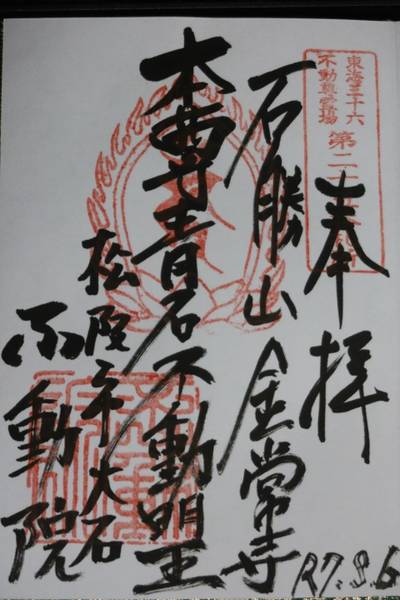 東海三十六
不動尊霊場
奉拝
石勝山金常寺
本尊青石不動明王
松阪市大石
不動院
R7.8.6